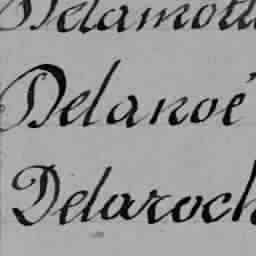 Delamott
Delanoé
Delaroch